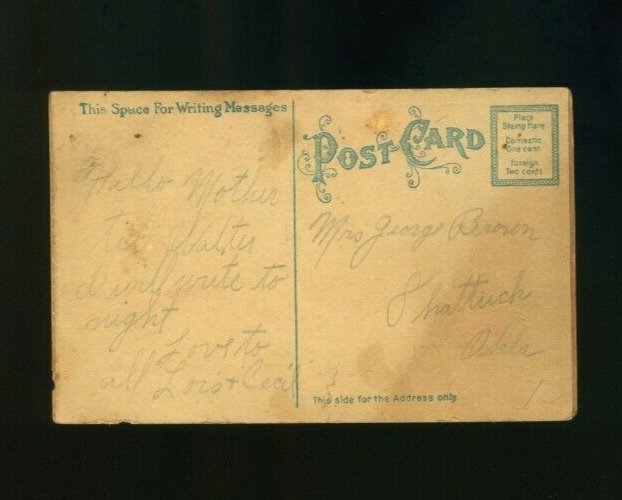 This Space For Writing Messages
Hello Mother
tell Walter
I will write to
night
Love to
all Lois + Cecil
POST-CARD
Place
Stamp Here
Domestic
One cent
Foreign
Two cents
Mrs George Brown
Shattuck
Okla
This side for the Address only.